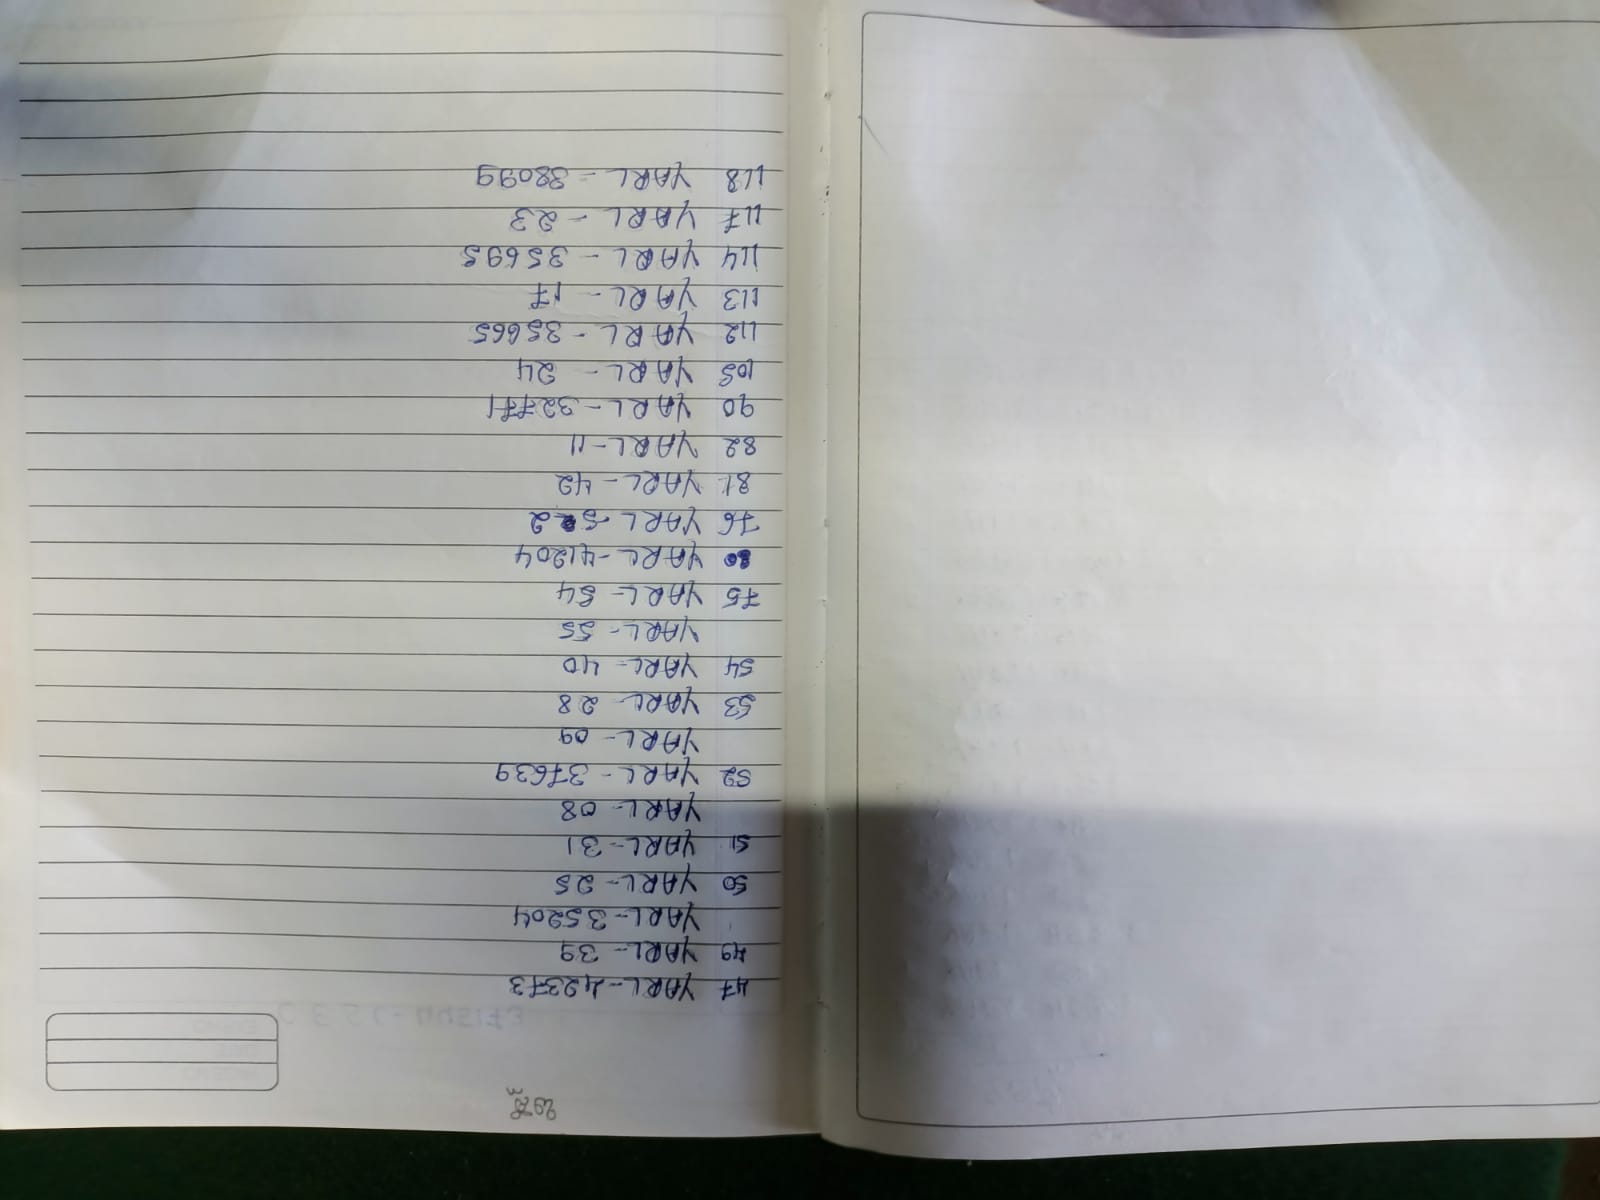 47 YARL-42373
49 YARL-39
YARL-35204
50 YARL-25
51 YARL-31
YARL-08
52 YARL-37639
YARL-09
53 YARL-28
54 YARL-40
YARL-55
75 YARL-54
80 YARL-41204
76 YARL-52
81 YARL-42
82 YARL-11
90 YARL-32771
105 YARL-24
112 YARL-35665
113 YARL-17
114 YARL-35695
117 YARL-23
118 YARL-38099